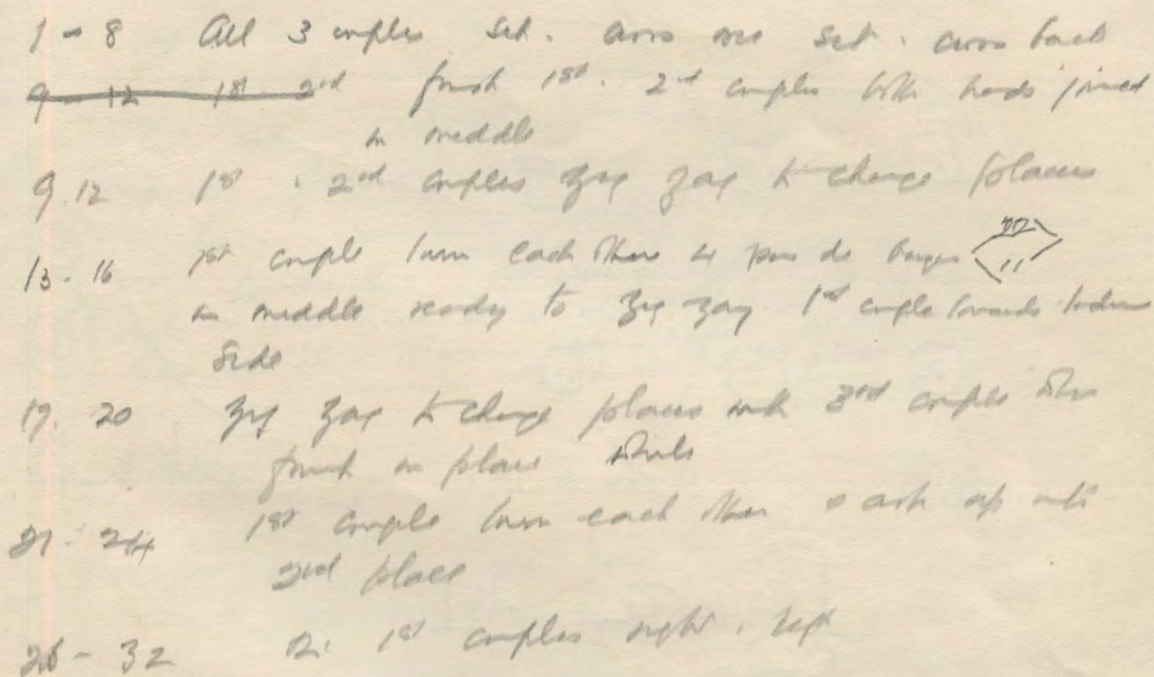 1 - 8 All 3 couples set. cross over set. cross back
9 - 12 1st 2nd finish 1st. 2nd couples both hands joined
in middle
9.12 1st . 2nd couples zig zag to change places
13. 16 1st couple turn each other 4 pas de basques
in middle ready to zig zag 1st couple towards
side
17. 20 zig zag to change places with 3rd couple who
finish in place
21 - 24 1st couple turn each other & cast up into
2nd place
26 - 32 2. 1st couples right . left